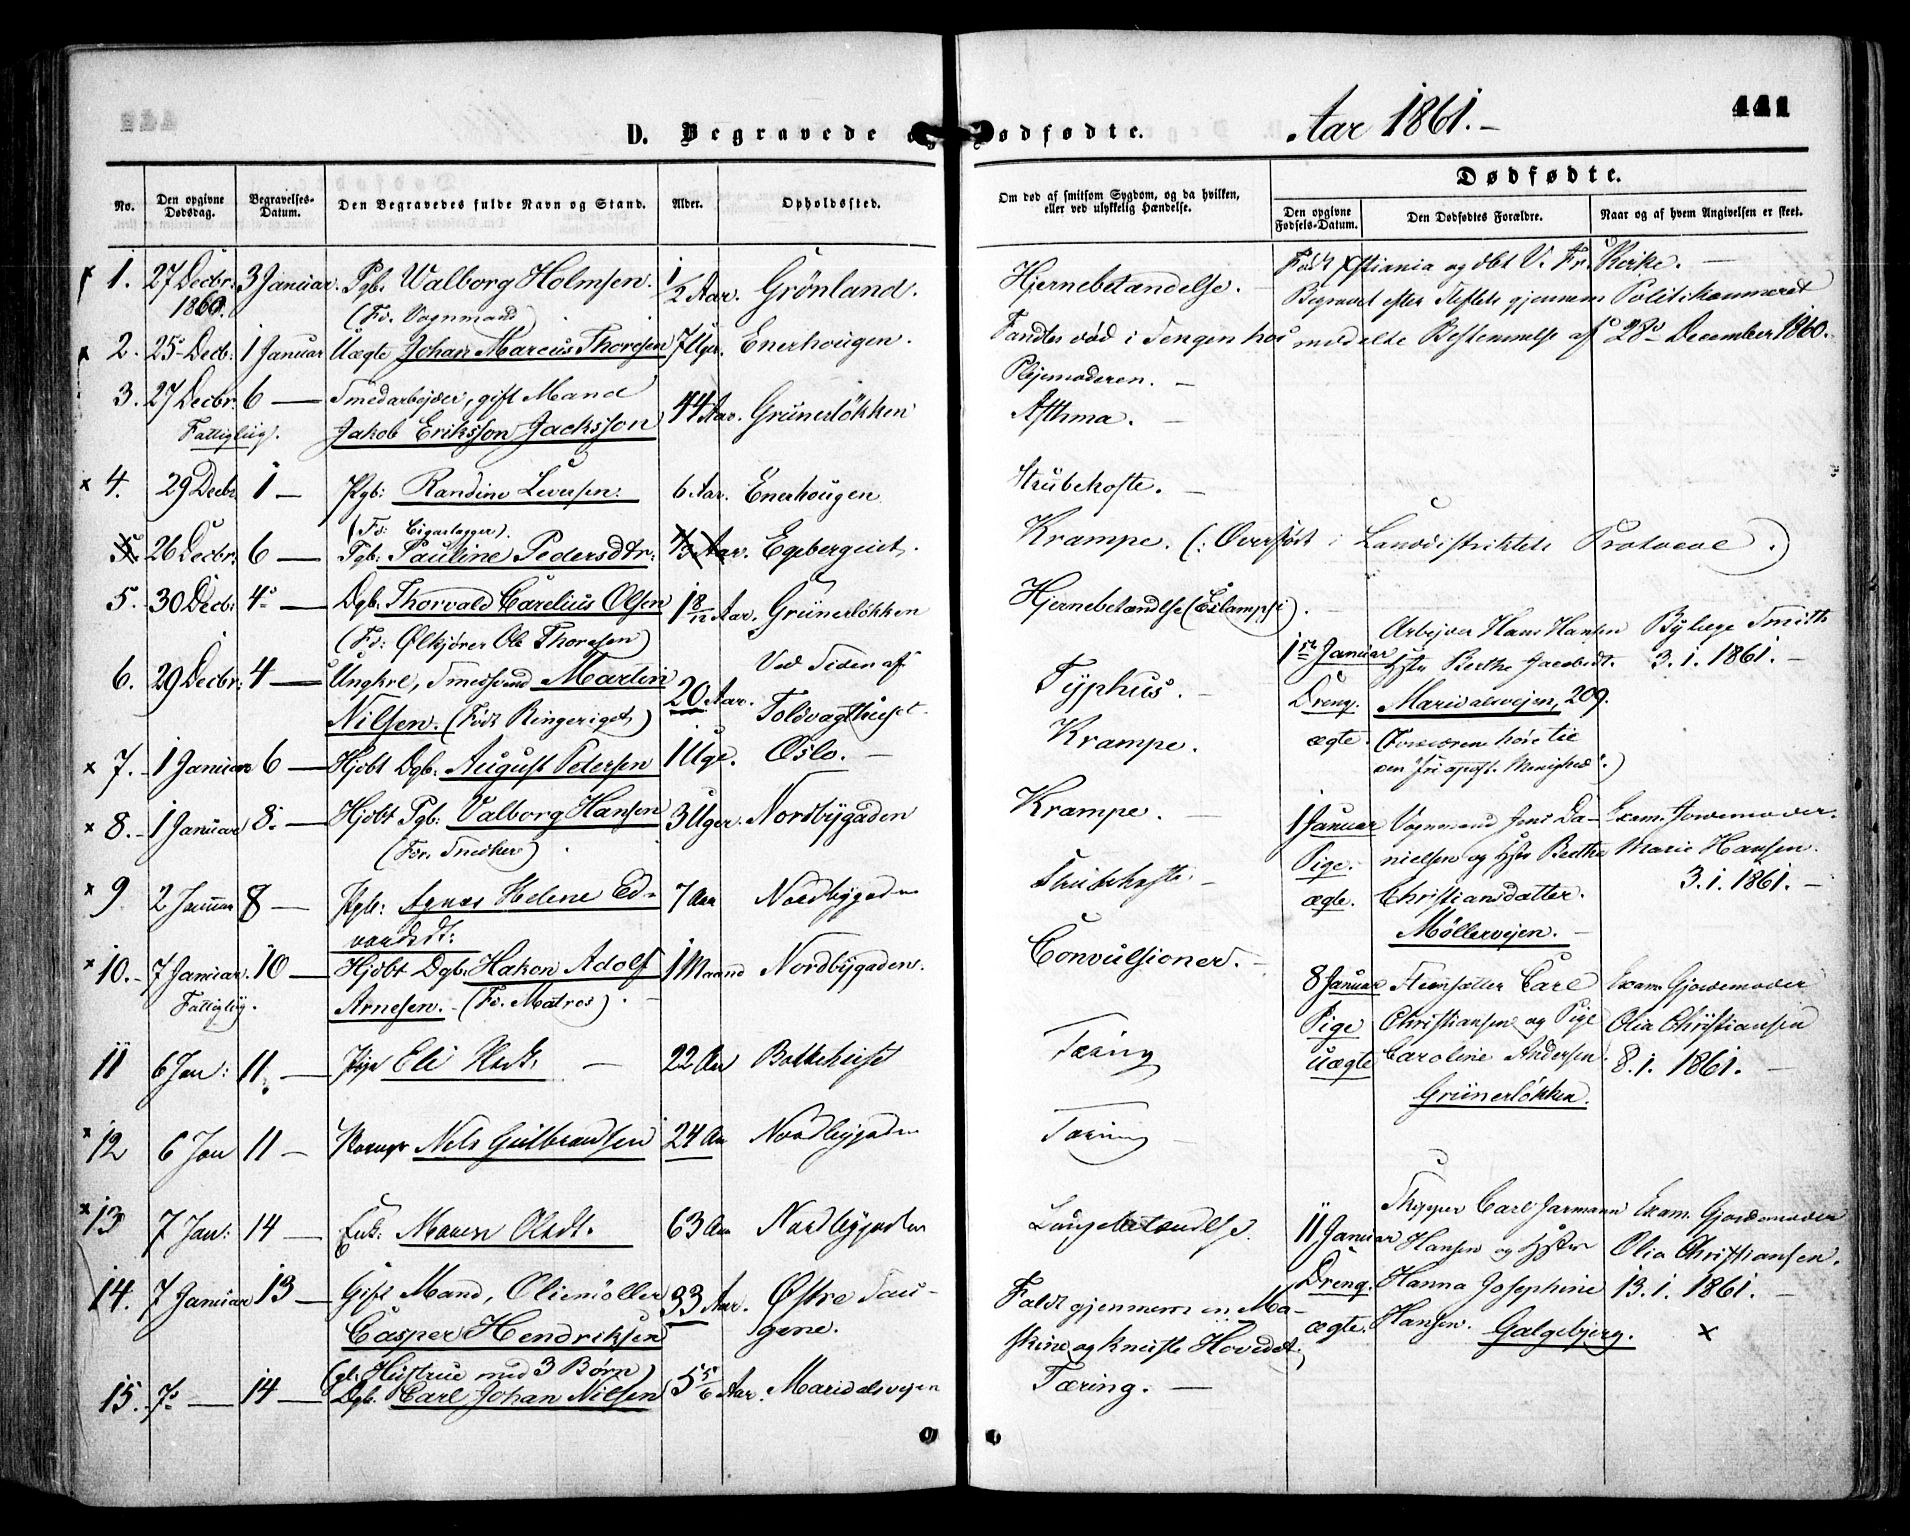 D. Begravede o
ødfødte.
Aar 1861.-
441
No.
Den opgivne Dødsdag.
Begravelses-Datum.
Den Begravedes fulde Navn og Stand.
Alder.
Opholdssted.
Om død af smitsom Sygdom, og da hvilken, eller ved ulykkelig Hændelse.
Dødfødte.
Den opgivne Fødsels-Datum.
Den Dødfødtes Forældre.
Naar og af hvem Angivelsen er skeet.
1. 27 Decbr. 3 Januar. Pgb. Walborg Holmsen. 1/2 Aar. Grønland. Hjernebetændelse. -
1860. (Fd. Vognmand)
Født Xstiania og dbt V. Fr. Kirke. -
Begravet efter Steftets gjennem Politikammeret
2. 25 Decb: 1 Januar Uægte Johan Marcus Thoresen 7 Uger. Enerhougen. Fandtes død i Sengen hos
meddelte Bestemmelse af 28 December 1860.
Plejemoderen. -
3. 27 Decbr. 6 - Smedarbejder, gift Mand
Fattiglig. Jakob Eriksson Jacksson 44 Aar. Grünerløkken Asthma. -
4. 29 Decbr 1 - Pgb: Randine Leversen. 6 Aar. Enerhougen Strubehoste. -
(Fd: Cigarlagger).
5 26 Decbr. 6 - Pgb: Pauline Pedersdtr: 1/3 Aar. Egebergeiet. Krampe. (: Overført i Landdistriktets Protocol.)
5. 30 Decb: 4 - Dgb. Thorvald Carelius Olsen 1 8/12 Aar. Grünerløkken Hjernebetændlse (Eslampsi).
(Fd: Ølkjører Ole Thoresen)
6. 29 Decbr: 4 - Ungkrl, Smedsvend Martin 20 Aar. Ved Siden af Typhus. -
Nilsen. (Født Ringeriget) Toldvagthuset.
7. - 1 Januar 6 - Hjdbt Dgb. August Petersen 1 Uge. Oslo. - Krampe.
8. - 1 Januar 8. - Hjdbt Pgb: Valborg Hansen 3 Uger. Nordbygaden Krampe. -
(Fdr. Snedker)
9 2 Januar 8 - Pgb: Agnes Helene Ed- 7 Aar Nordbygaden Strubehoste. -
vardsdt:
10. - 7 Januar. 10 - Hjdbt Dgb. Hakon Adolf 1 Maaned Nordbygaden. Convulsioner. -
Fattiglig. Arnesen. - (Fd. Matros)
11 6 Jan: 11 - Pige Eli 22 Aar Bolkehuset Tæring
12 6 Jan 11 - Nels Gulbrandsen 24 Aar Nordbygaden Tæring
13 7 Jan: 14 - Enk: Maren Olsdt. 63 Aar Nordbygaden Lungebetændelse.
14. 7 Januar 13 - Gift Mand, Oliemøller 33 Aar. Østre Gau- Faldt gjennem en Ma-
Casper Hendriksen gene. skine og knuste Hovedet.
(gl. Hustrue med 3 Børn)
15. 7 - 14 - Dgb. Carl Johan Nilsen 5 5/6 Aar. Maridalsvejen Tæring. -
1ste Januar Arbejder Hans Hansen Bylæge Smith
Hstr Berthe Jacobsdt. 3. 1. 1861. -
Dreng. Maridalsvejen, 209.
ægte. (Forældrene høre til
den "fri apost. Menighed".)
1 Januar Vognmand Jens Da- Exam. Jordemoder
Pige. nielsen og Hstr Berthe Marie Hansen.
ægte. Christiansdatter. 3. 1. 1861. -
Møllervejen. -
8 Januar Steensætter Carl Exam. Gjordemoder
Pige Christiansen og Pige Olia Christiansen
uægte Caroline Andersen. 8. 1. 1861. -
Grünerløkken.
11 Januar Skipper Carl Jarmann Exam. Gjordemoder
Hansen og Hstr Olia Christiansen.
Dreng. Hanna Josephine 13. 1. 1861. -
ægte. Hansen. Galgebjerg. x